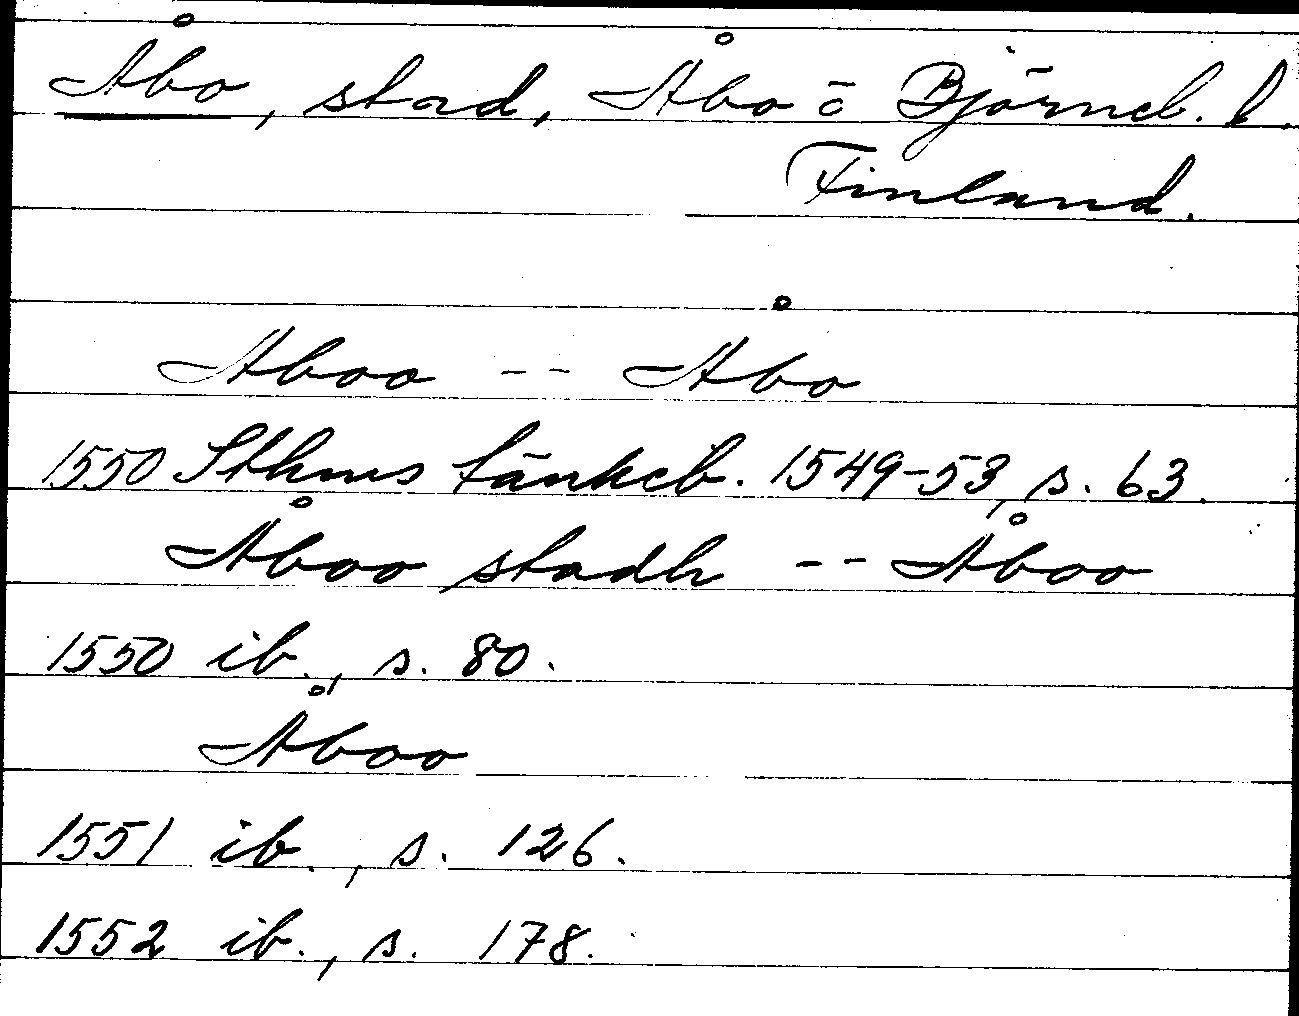 Åbo, stad, Åbo o Björneb. l.
Finland.
Aboo -- Åbo
1550 Sthms tänkeb. 1549-53, s. 63.
Åboo stadh -- Åboo
1550 ib., s. 80.
Åboo
1551 ib., s. 126.
1552 ib., s. 178.